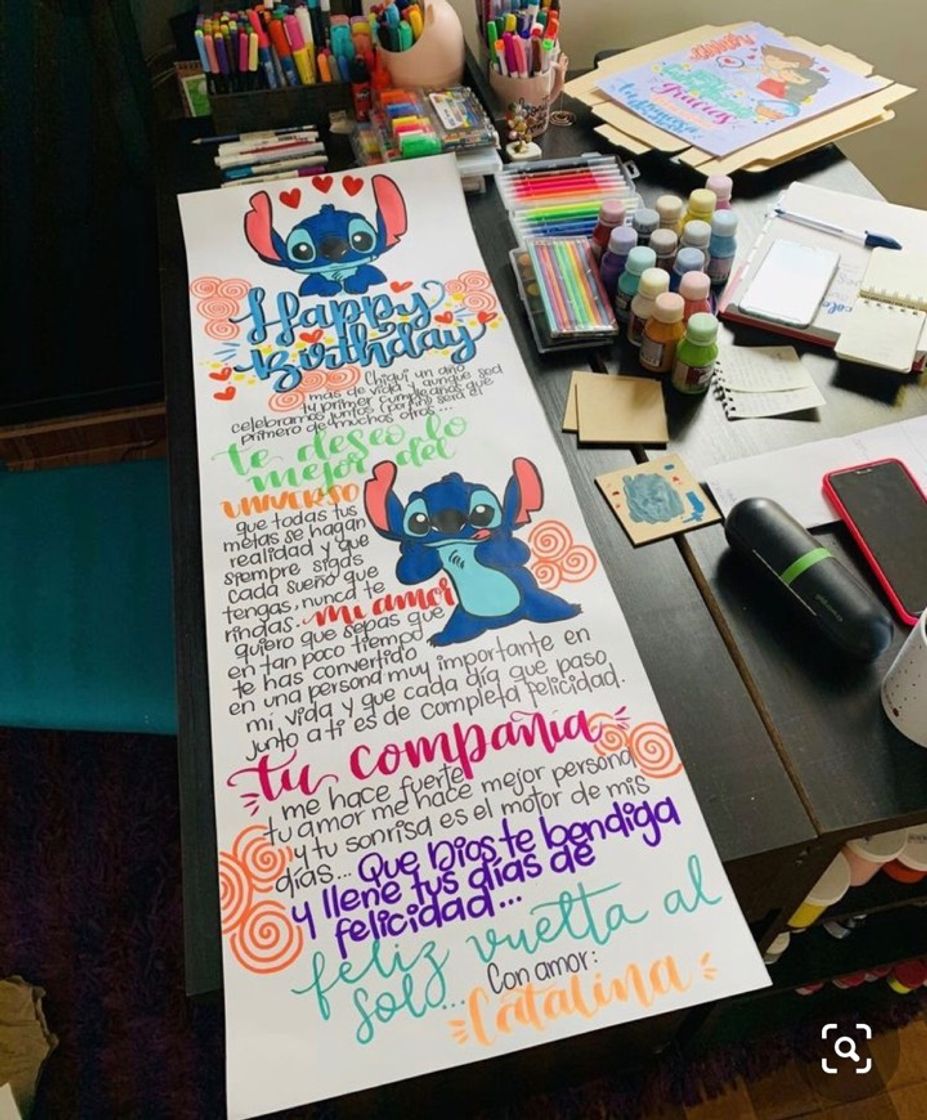 Happy
Birthday
Chiqui un año
más de vida y aunque sea
tu primer cumpleaños que
celebramos juntos (porque será el
primero de muchos otros...
te deseo lo
mejor del
UNIVERSO
que todas tus
metas se hagan
realidad y que
siempre sigas
cada sueño que
tengas, nunca te
rindas. mi amor
quiero que sepas que
en tan poco tiempo
te has convertido
en una persona muy importante en
mi vida y que cada día que paso
junto a ti es de completa felicidad.
tu compañia
me hace fuerte
tu amor me hace mejor persona
y tu sonrisa es el motor de mis
días... Que Dios te bendiga
y llene tus días de
felicidad...
feliz vuelta al
sol...
Con amor:
Catalina
gracias